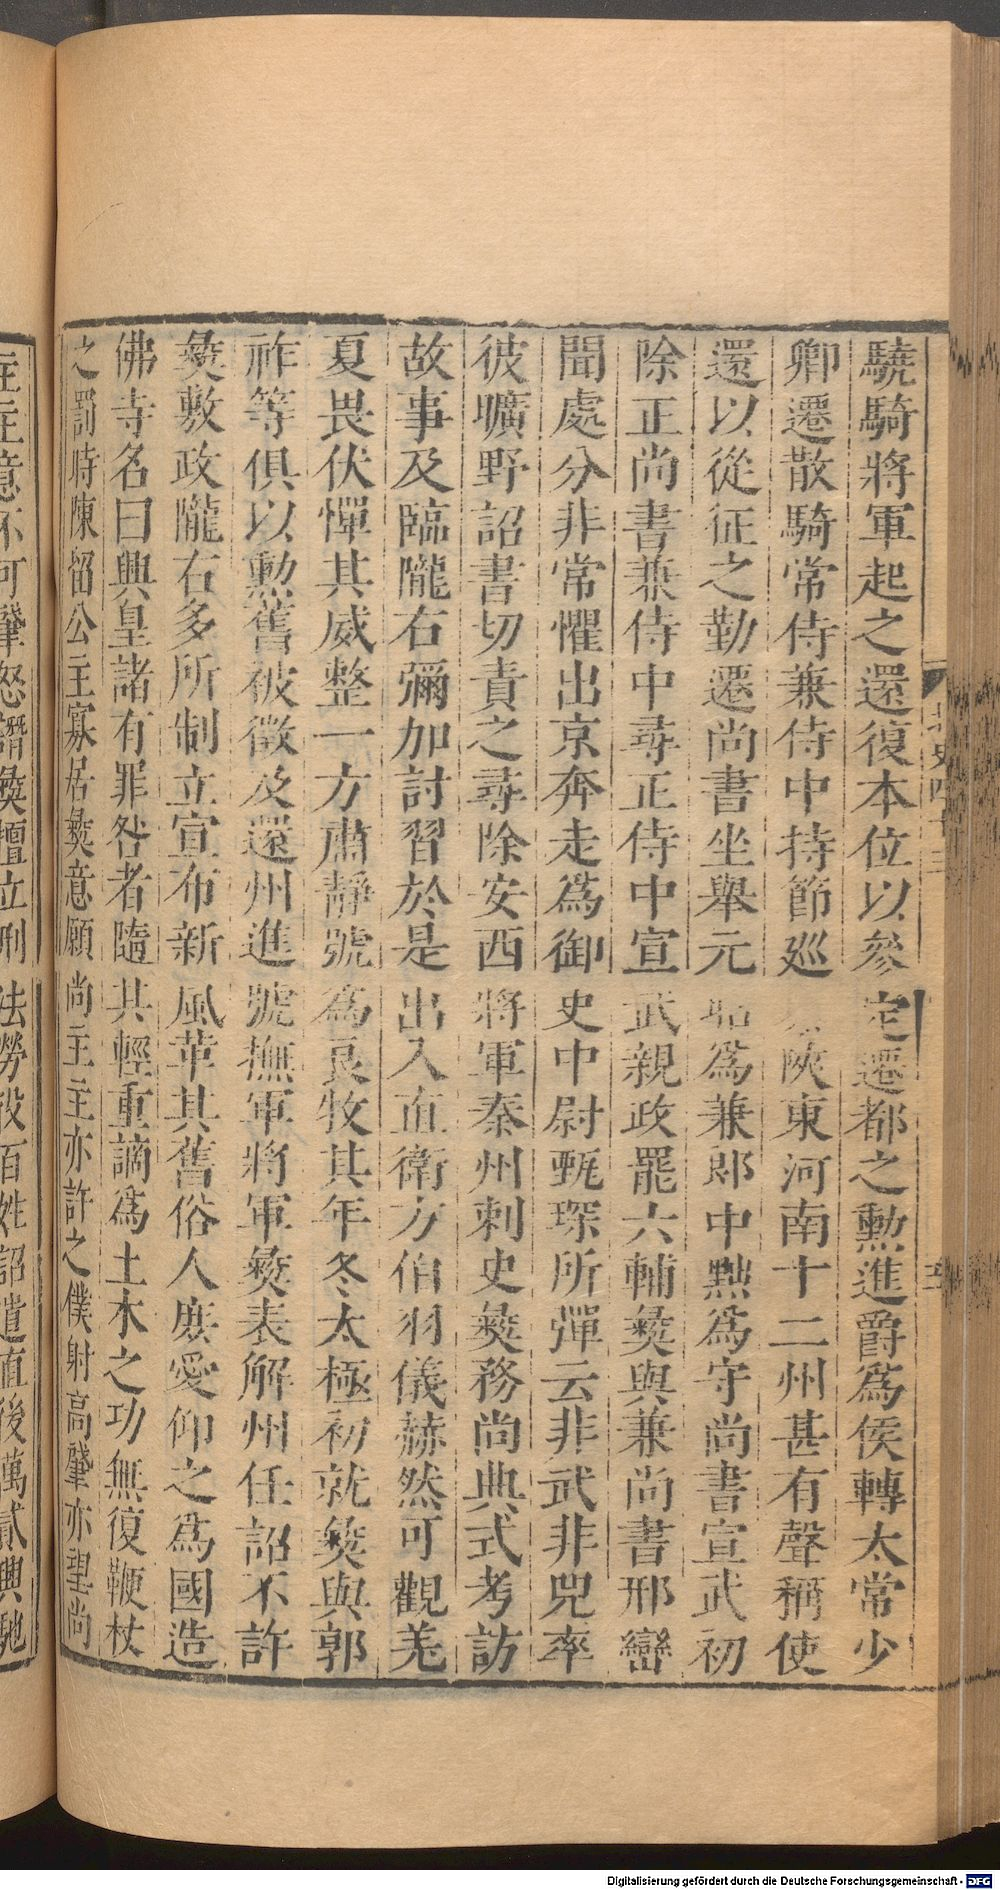 驍騎將軍起之還復本位以參定遷都之勲進爵爲侯轉太常少
卿遷散騎常侍兼侍中持節巡陝東河南十二州甚有聲稱使
還以從征之勤遷尚書坐舉元昭爲兼郎中黜爲守尚書宣武初
除正尚書兼侍中尋正侍中宣武親政罷六輔彝與兼尚書邢巒
聞處分非常懼出京奔走爲御史中尉甄琛所彈云非武非兕率
彼曠野詔書切責之尋除安西將軍秦州刺史彝務尚典式考訪
故事及臨隴右彌加討習於是出入直衛方伯羽儀赫然可觀羌
夏畏伏憚其威整一方肅靜號爲良牧其年冬太極初就彝與郭
祚等俱以勲舊被徵及還州進號撫軍將軍彝表解州任詔不許
彝敷政隴右多所制立宣布新風革其舊俗人庶愛仰之爲國造
佛寺名曰興皇諸有罪咎者隨其輕重謫爲土木之功無復鞭杖
之罰時陳留公主寡居彝意願尚主主亦許之僕射高肇亦望尚
主主意不可肇怒譖彝擅立刑法勞役百姓詔遣直後萬貳興馳
北史四十三
Digitalisierung gefördert durch die Deutsche Forschungsgemeinschaft - DFG